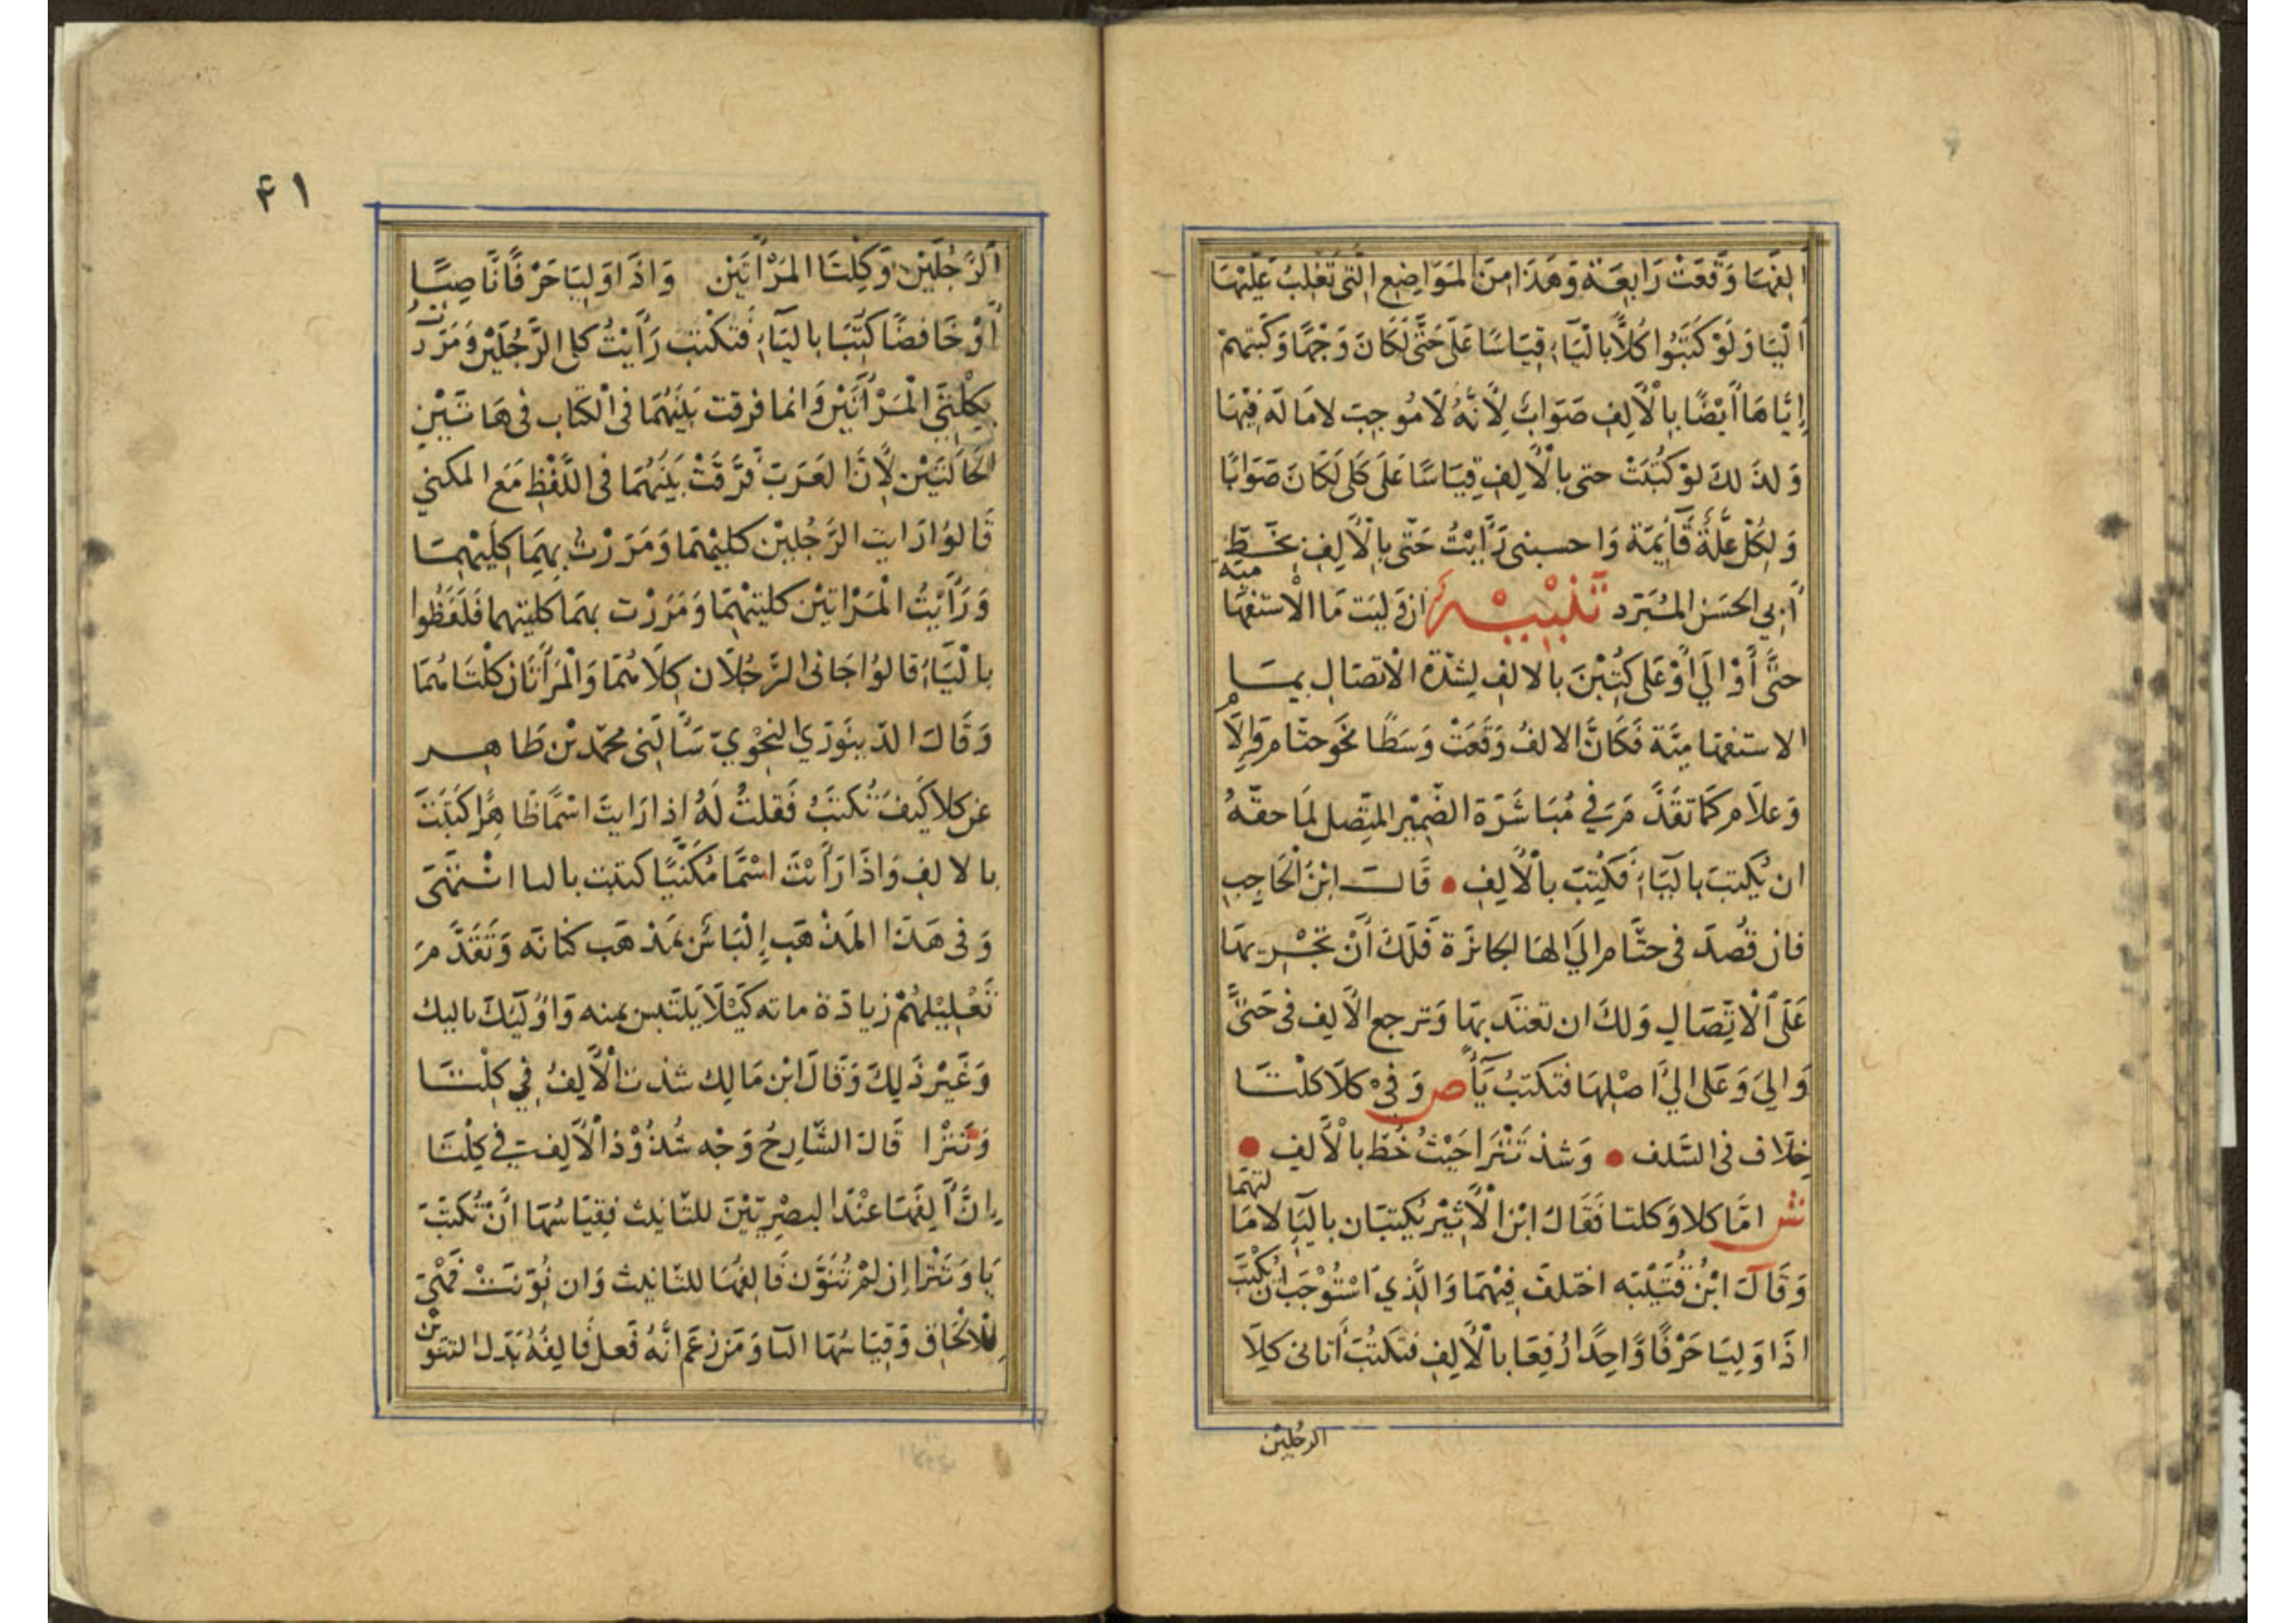 الفها وقعت رابعة وهذا من المواضع التي تغلب عليها
اليا ولو كتبوا كلا بالياء قياسا على حتى لكان وجها وكتبهم
إياها أيضا بالألف صواب لأنه لا موجب لامالة فيها
ولذلك لو كتبت حتى بالألف قياسا على كلى لكان صوابا
ولكل علة قايمة واحسبني رأيت حتى بالألف بخط
أبي الحسن المبرد تنبيه ان وليت ما الاستفها مية
حتى أو الى أو على كتبن بالالف لشدة الاتصال بما
الاستفها مية فكان الالف وقعت وسطا نحو حتام والام
وعلام كما تقدم مر في مباشرة الضمير المتصل لما حقه
ان يكتب بالياء فكتب بالألف • قال ابن الحاجب
فان قصد في حتام الى الها الجائزة فلك أن تجريها
على الاتصال ولك ان تعتد بها وترجع الألف في حتى
والى وعلى الى اصلها فتكتب يأ ص وفي كلا كلتا
خلاف في السلف • وشذ تترا حيث خط بالألف •
ش اما كلا وكلتا فقال ابن الأثير يكتبان باليا لامالتهما
وقال ابن قتيبه اختلف فيهما والذي استوجب ان يكتب
اذا وليا حرفا واحدا رفعا بالألف فتكتب أتاني كلا
الرجلين
۴۱
الرجلين وكلتا المرأتين واذا وليا حرفا ناصبا
أو خافضا كتبا بالياء فتكتب رأيت كلي الرجلين ومررت
بكلتي المرأتين وانما فرقت بينهما في الكتاب في هاتين
الحالتين لأن العرب فرقت بينهما في اللفظ مع المكني
قالوا رايت الرجلين كليهما ومررت بهما كليهما
ورأيت المراتين كلتيهما ومررت بهما كلتيهما فلفظوا
بالياء قالوا جاني الرجلان كلاهما والمرأتان كلتاهما
وقال الدينوري النحوي سألني محمد بن طاهر
عن كلا كيف تكتب فقلت له اذا رايت اسما ظاهرا كتبت
بالالف واذا رأيت اسما مكنيا كتبت باليا انتهى
وفي هذا المذهب إلباس بمذهب كنانه وتقدم مر
تعليلهم زيادة مائه كيلا يلتبس بمنه واوليك باليك
وغير ذلك وقال ابن مالك شذت الألف في كلتا
وتترا قال الشارح وجه شذوذ الألف في كلتا
ان ألفها عند البصريين للتانيث فقياسها أن تكتب
يا وتترا ان لم تنون فالفها للتانيث وان نونت فهي
للالحاق وقياسها اليا ومن زعم انه فعل فالفه بدل التنوين